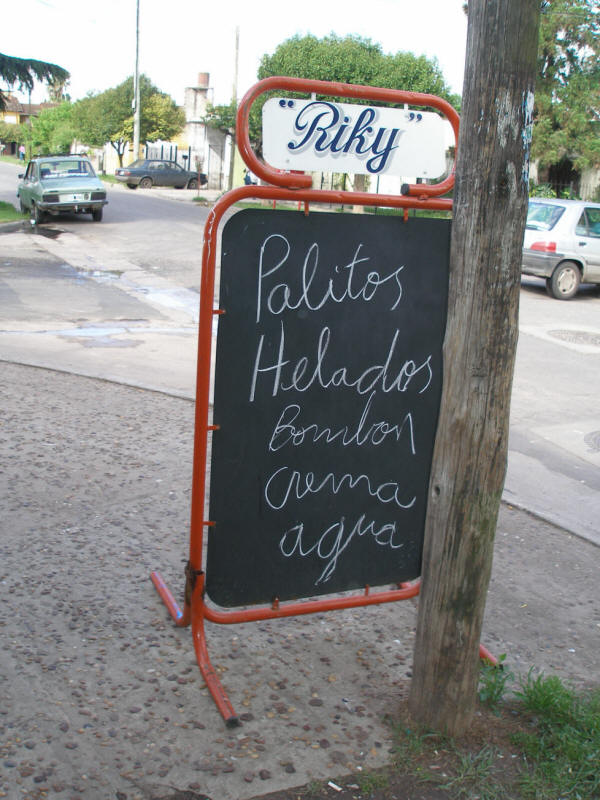 "Riky"
Palitos
Helados
Bombon
crema
agua